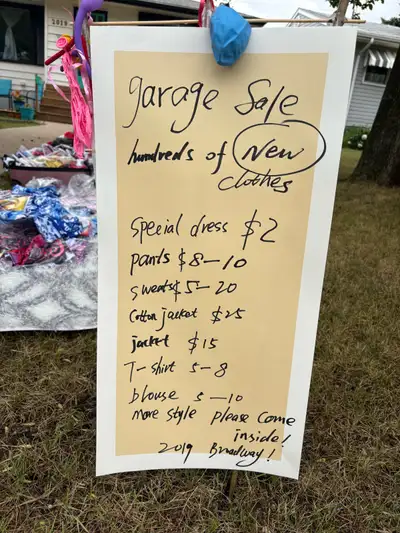 2019
garage Sale
hundreds of New
clothes
special dress $2
pants $8-10
sweats $5-20
Cotton jacket $25
jacket $15
T-shirt 5-8
blouse 5-10
more style please come
inside!
2019 Broadway!